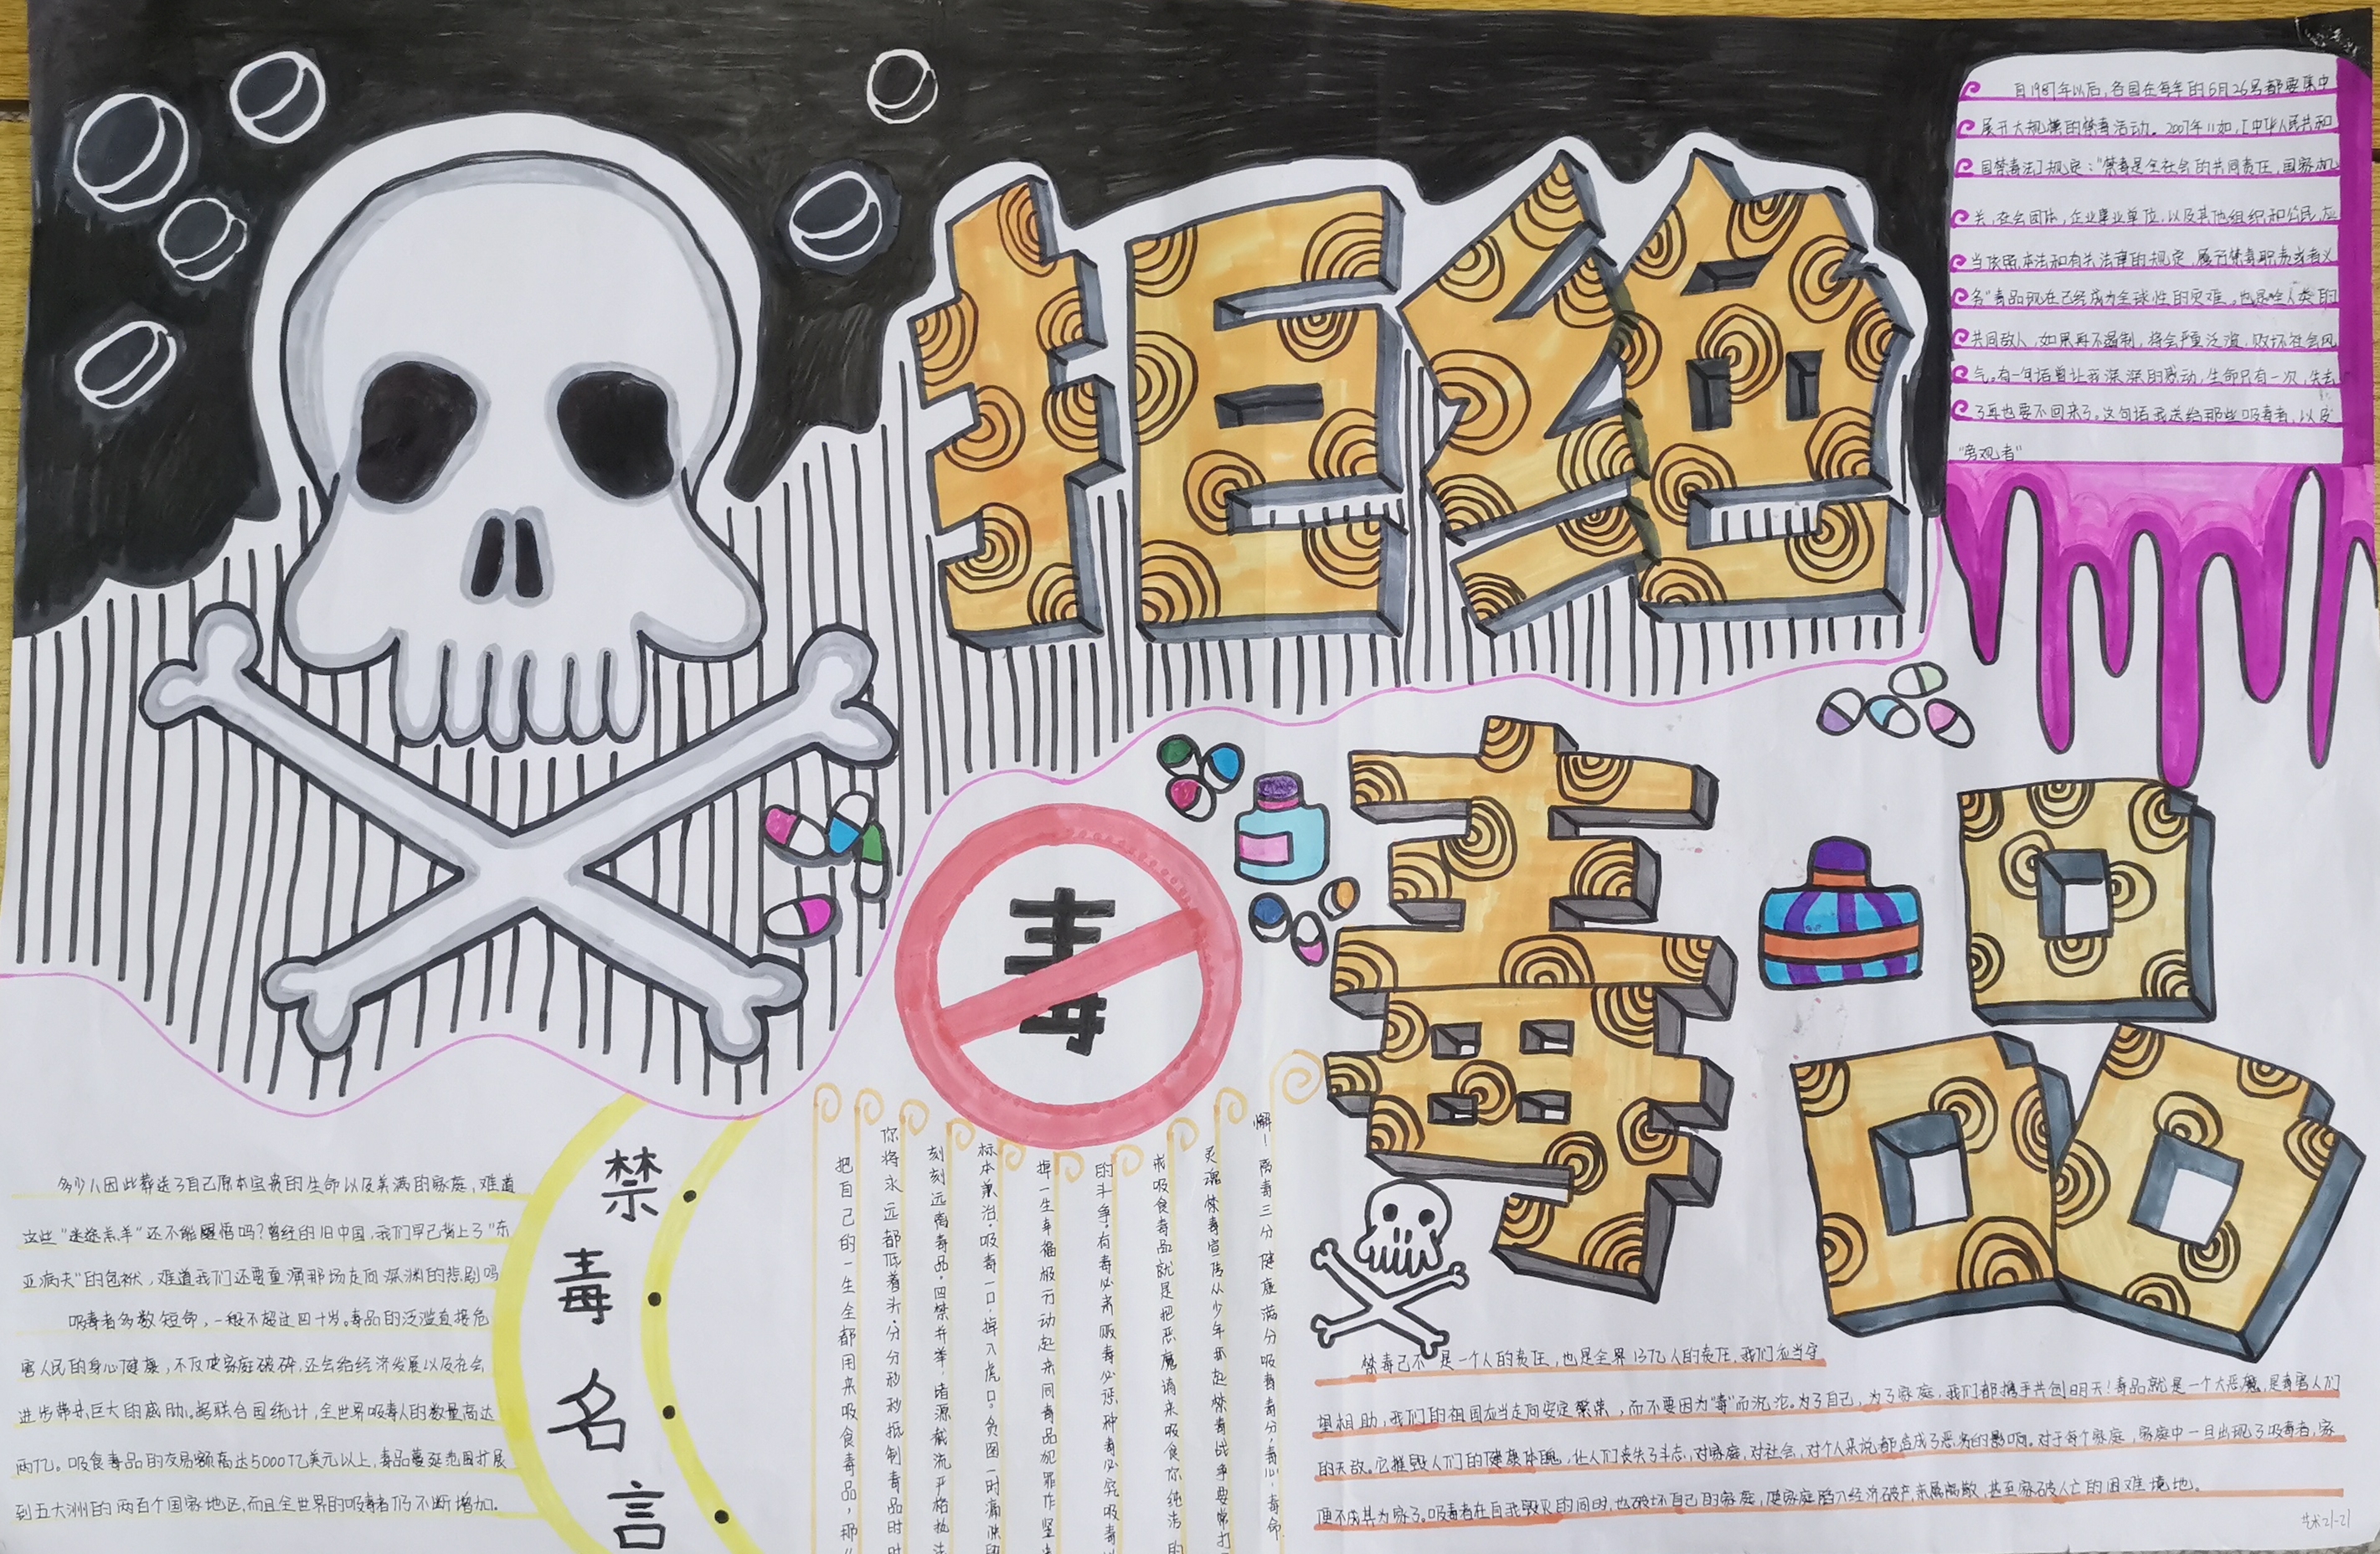 拒绝
毒品
毒
自1987年以后,各国在每年的6月26号都要集中
展开大规模的禁毒活动。2007年
国禁毒法]规定:"禁毒是全社会的共同责任,国家机
关,社会团体,企业事业单位,以及其他组织和公民,应
当依照本法和有关法律的规定,履行禁毒职责或者义
务"毒品现在已经成为全球性的灾难,也是全人类的
共同敌人,如果再不遏制,将会严重泛滥,败坏社会风
气。有一句话曾让我深深的感动,生命只有一次,失去
了再也要不回来了。这句话我送给那些吸毒者,以及
"旁观者"
多少人因此葬送了自己原本宝贵的生命以及美满的家庭,难道
这些"迷途羔羊"还不能醒悟吗?曾经的旧中国,我们早已背上了"东
亚病夫"的包袱,难道我们还要重演那场走向深渊的悲剧吗
吸毒者多数短命,一般不超过四十岁。毒品的泛滥直接危
害人民的身心健康,不仅使家庭破碎,还会给经济发展以及社会
进步带来巨大的威胁。据联合国统计,全世界吸毒人的数量高达
两亿。吸食毒品的交易额高达5000亿美元以上,毒品蔓延范围扩展
到五大洲的两百个国家地区,而且全世界的吸毒者仍不断增加.
禁毒名言
懈!离毒三分 健康满分 吸毒毒分,毒心,毒命
灵魂 禁毒宣传从少年抓起 禁毒战争要常打
戒 吸食毒品就是把恶魔请来吸食你纯洁的
的斗争。有毒必肃 贩毒必惩 种毒必究 吸毒
掉一生幸福 积极行动起来同毒品犯罪作坚
标本兼治。吸毒一口,掉入虎口。贪图一时痛快
刻刻远离毒品。四禁并举,堵源截流 严格执法
你将永远都低着头。分分秒秒抵制毒品 时时
把自己的一生全都用来吸食毒品,那
禁毒已不是一个人的责任,也是全界13亿人的责任,我们应当守
望相助,我们的祖国应当走向安定繁荣,而不要因为"毒"而沉沦。为了自己,为了家庭,我们都携手共创明天!毒品就是一个大恶魔,是毒害人们
的天敌。它摧毁人们的健康体魄,让人们丧失了斗志,对家庭,对社会,对个人来说都造成了恶劣的影响。对于每个家庭,家庭中一旦出现了吸毒者,家
便不成其为家了。吸毒者在自我毁灭的同时,也破坏自己的家庭,使家庭陷入经济破产,亲属离散,甚至家破人亡的困难境地。
艺术21-21